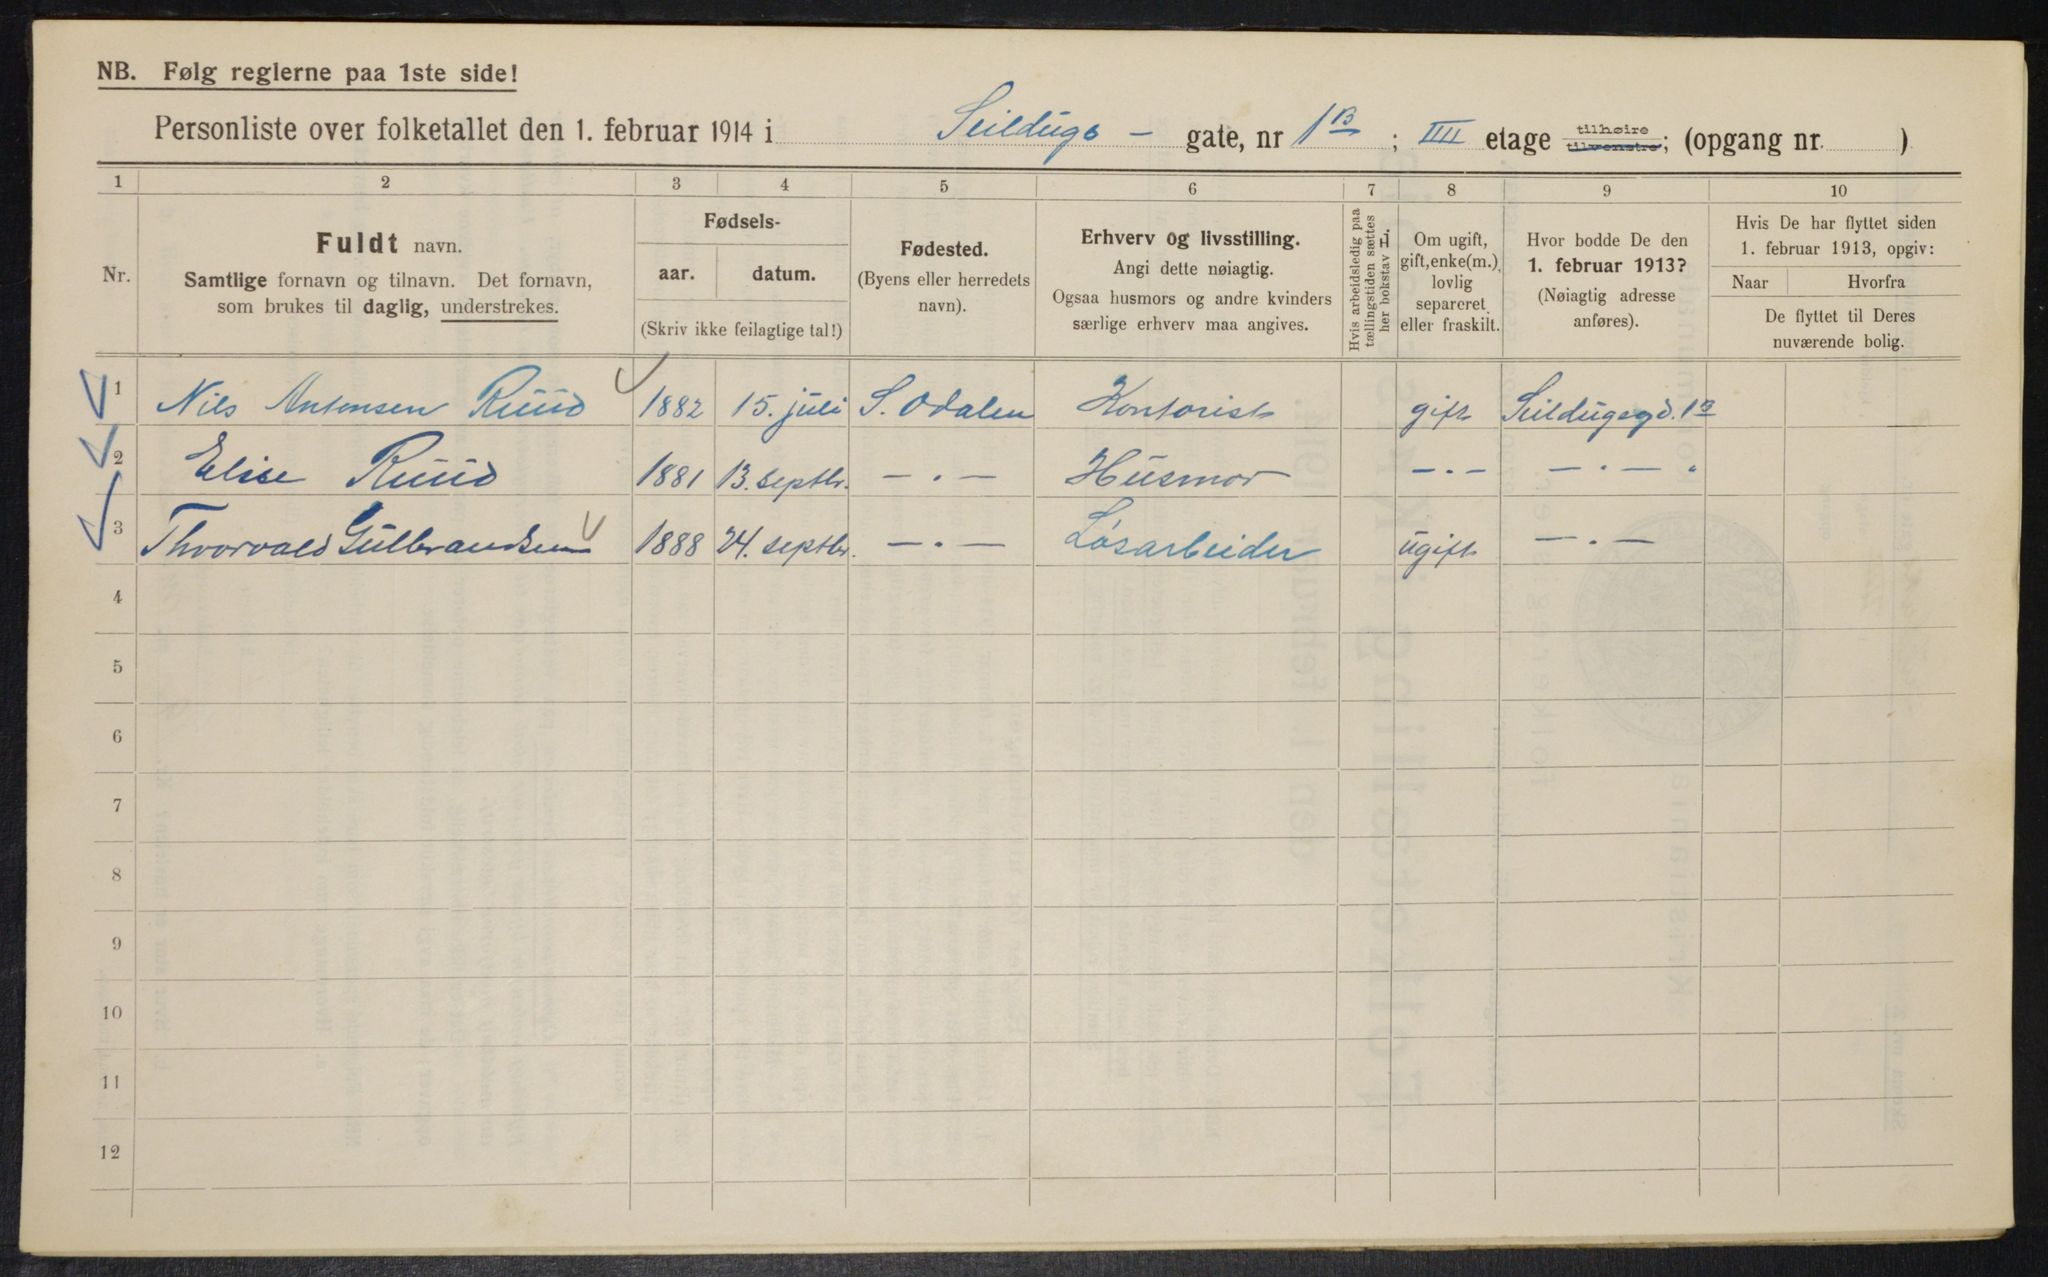 NB. Følg reglerne paa 1ste side!
Personliste over folketallet den 1. februar 1914 i Seildugs - gate, nr 1B ; IIII etage tilhøire tilvenstre; (opgang nr. )
1 2 3 4 5 6 7 8 9 10
Nr.
Fuldt navn.
Samtlige fornavn og tilnavn. Det fornavn,
som brukes til daglig, understrekes.
Fødsels-
aar. datum.
(Skriv ikke feilagtige tal!)
Fødested.
(Byens eller herredets
navn).
Erhverv og livsstilling.
Angi dette nøiagtig.
Ogsaa husmors og andre kvinders
særlige erhverv maa angives.
Hvis arbeidsledig paa
tællingstiden sættes
her bokstav H.
Om ugift,
gift, enke(m.),
lovlig
separeret
eller fraskilt.
Hvor bodde De den
1. februar 1913?
(Nøiagtig adresse
anføres).
Hvis De har flyttet siden
1. februar 1913, opgiv:
Naar Hvorfra
De flyttet til Deres
nuværende bolig.
1 Nils Antonsen Ruud 1882 15. juli S. Odalen Kontorist gift Seildugsgd. 1B
2 Elise Ruud 1881 13. septbr. — . — Husmor — . — — . — "
3 Thorvald Gulbrandsen 1888 24. septbr. — . — Løsarbeider ugift — . —
4
5
6
7
8
9
10
11
12